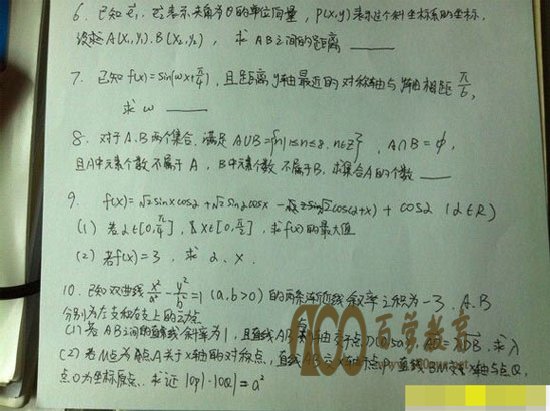 6. 已知 e₁, e₂ 表示夹角为θ的单位向量, P(x,y)表示这个斜坐标系的坐标,
设 A(X₁,Y₁).B(X₂,Y₂), 求 AB之间的距离
7. 已知 f(x)=sin(ωx+π/4), 且距离y轴最近的对称轴与y轴相距 π/6,
求 ω
8. 对于A.B两个集合, 满足 A∪B={n|1≤n≤8, n∈Z}, A∩B=φ,
且A中元素个数不属于A, B中元素个数不属于B, 求集合A的个数
9. f(x)=√2sinxcos2 +√2sin2cosx cos(2+x) + cos2 (2∈R)
(1) 若2∈[0,π/4], 且x∈[0,π/2], 求f(x)的最大值
(2) 若f(x)=3, 求 2、x.
10. 已知双曲线 x²/a² - y²/b² =1 (a,b>0) 的两条渐近线斜率之积为-3, A.B
分别为左支和右支上的
(1) 若AB之间的直线斜率为1, 且直线AB 轴于点D AD=λDB, 求λ
(2) 若M点为A点关于x轴的对称点, 直线AB交x轴于点P, 直线BM交x轴与点Q,
点O为坐标原点, 求证 |OP|·|OQ|=a²
100百学教育